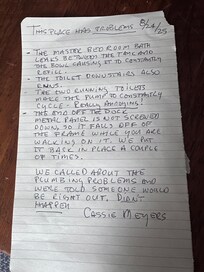 THIS PLACE HAS PROBLEMS 8/24/25
• THE MASTER BEDROOM BATH
LEAKS BETWEEN THE TANK AND
THE BOWL CAUSING IT TO CONSTANTLY
REFILL.
• THE TOILET DOWNSTAIRS ALSO
RUNS.
• THE TWO RUNNING TOILETS
MAKE THE PUMP TO CONSTANTLY
CYCLE. REALLY ANNOYING!
• THE END OFF THE DOCK
METAL PANEL IS NOT SCREWED
DOWN SO IT FALLS OFF OF
THE FRAME WHILE YOU ARE
WALKING ON IT. WE PUT
IT BACK IN PLACE A COUPLE
OF TIMES.
WE CALLED ABOUT THE
PLUMBING PROBLEMS AND
WERE TOLD SOMEONE WOULD
BE RIGHT OUT. DIDN'T
HAPPEN
CASSIE MEYERS